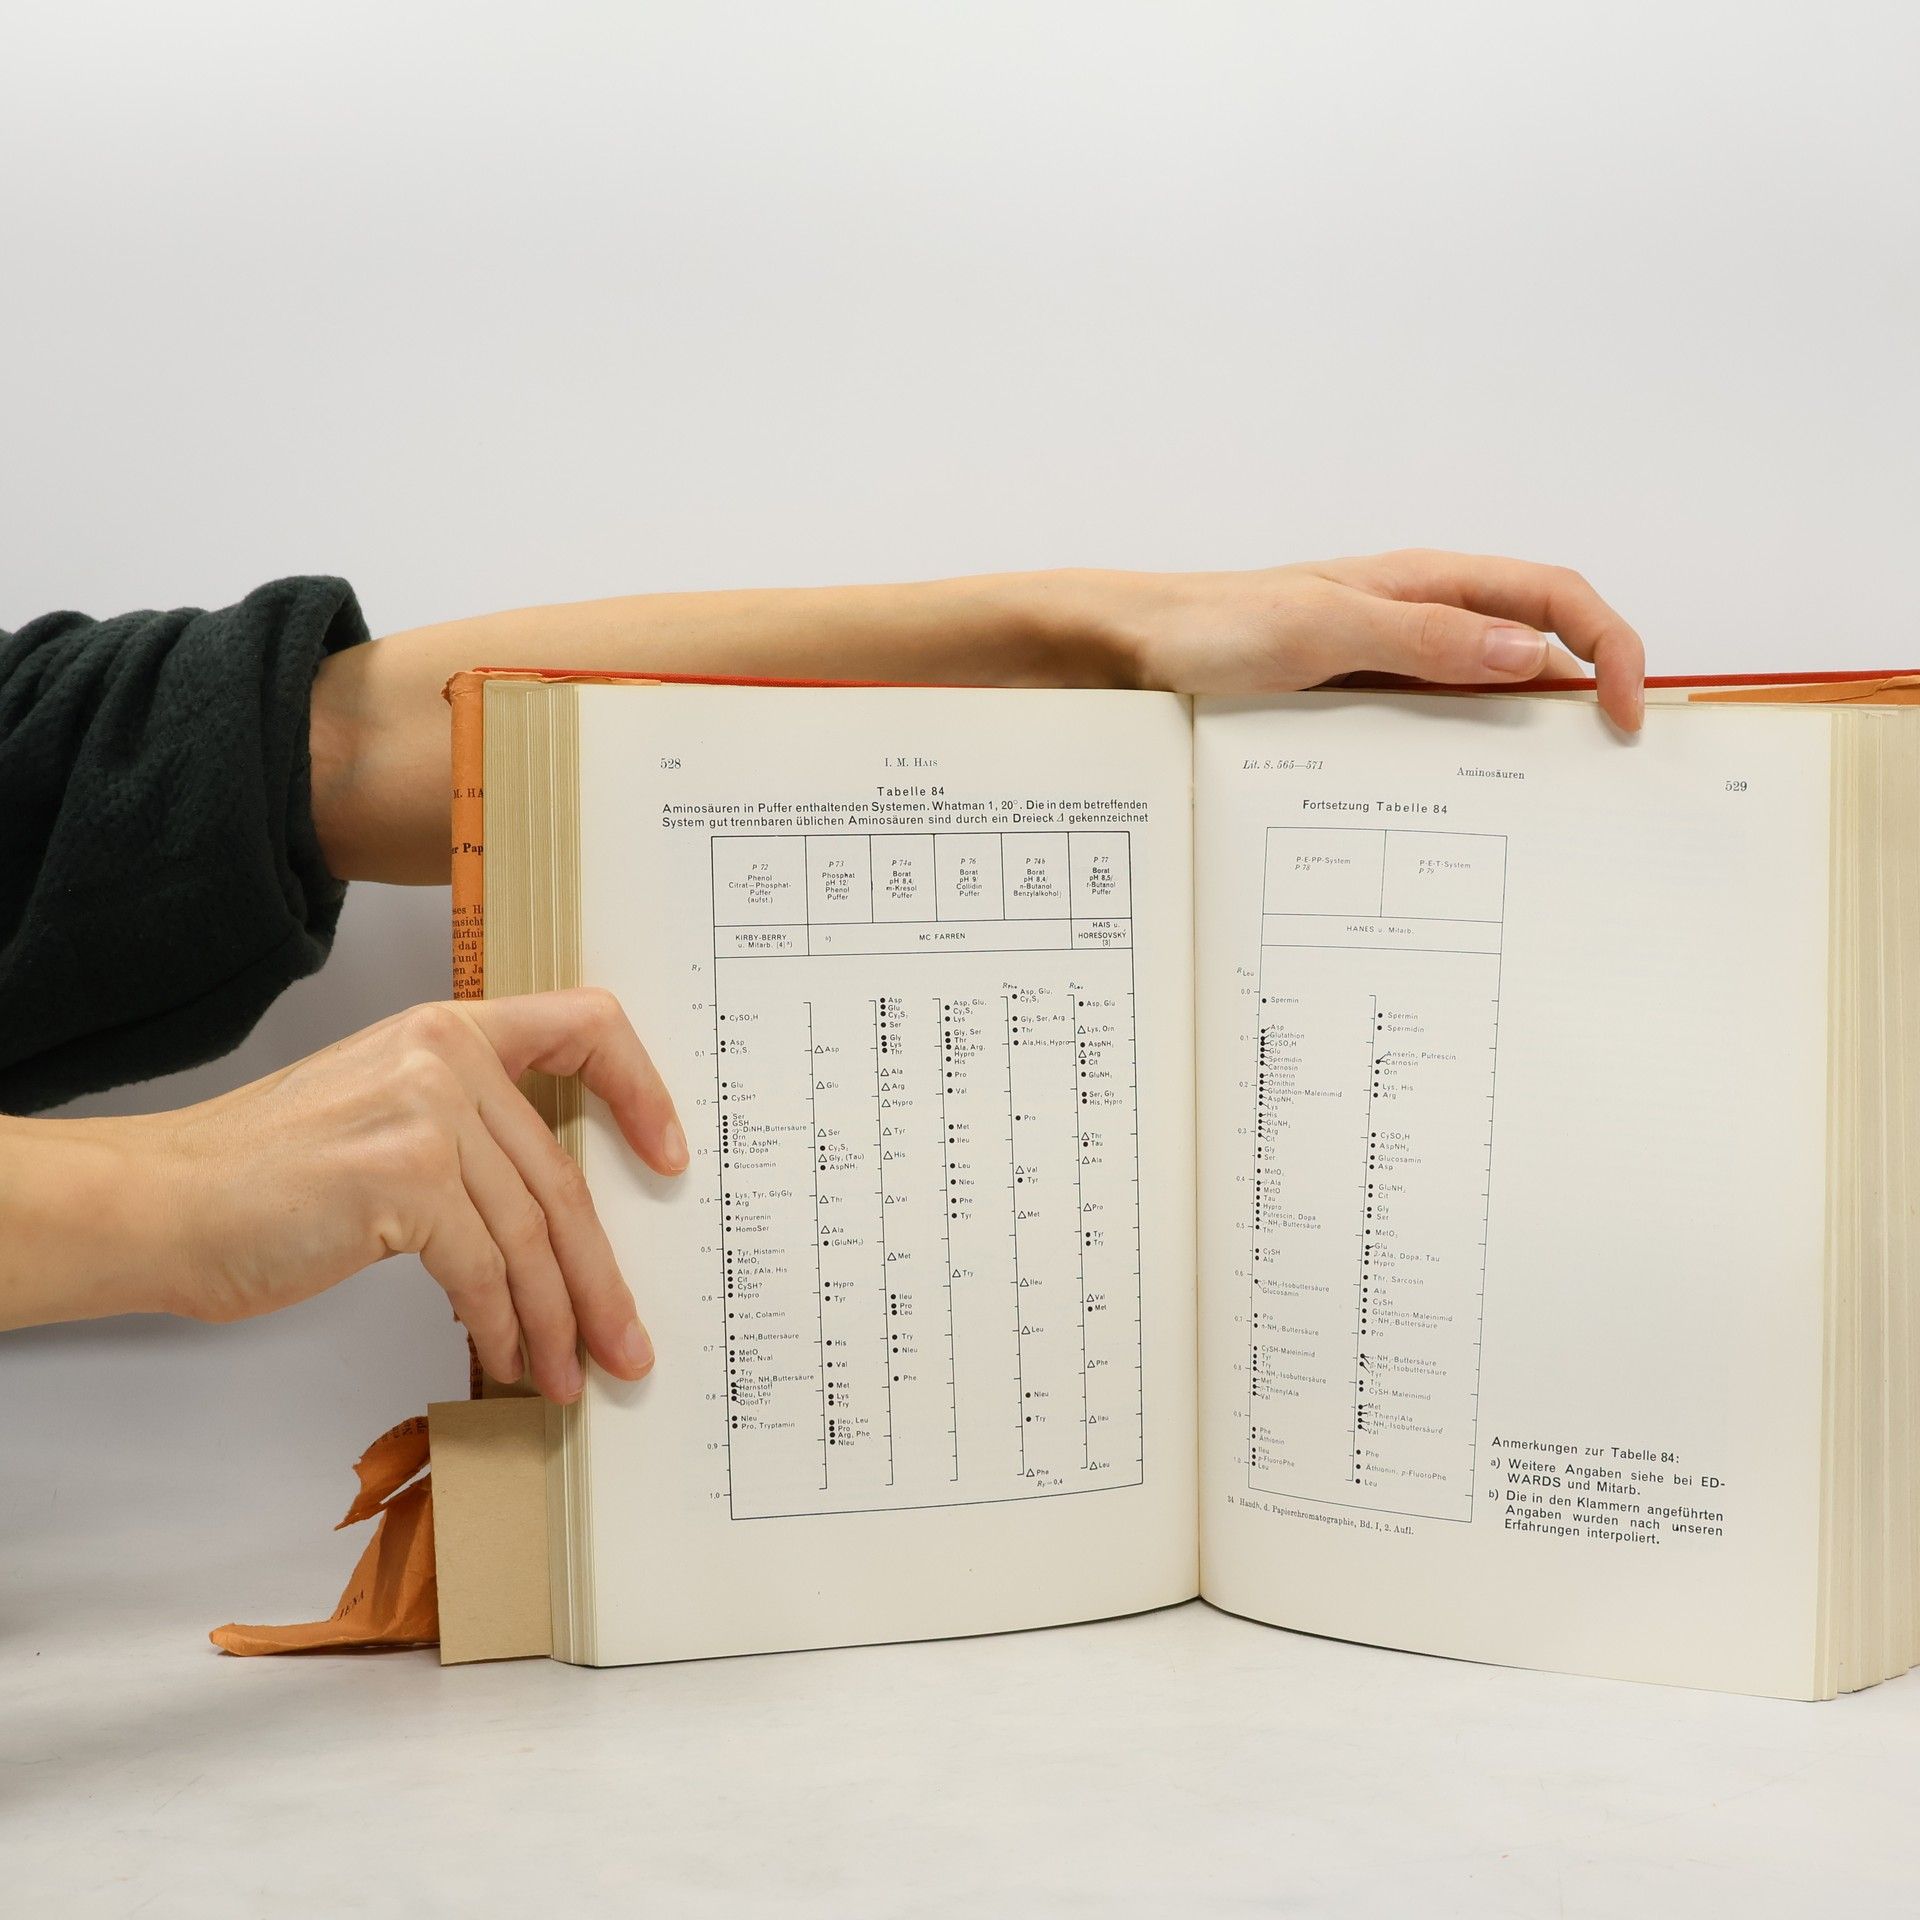 528
I. M. Hais
Tabelle 84
Aminosäuren in Puffer enthaltenden Systemen. Whatman 1, 20°. Die in dem betreffenden
System gut trennbaren üblichen Aminosäuren sind durch ein Dreieck Δ gekennzeichnet
P 72
Phenol
Citrat—Phosphat-
Puffer
(aufst.)
P 73
Phosphat
pH 12/
Phenol
Puffer
P 74a
Borat
pH 8,4/
m-Kresol
Puffer
P 76
Borat
pH 9/
Collidin
Puffer
P 74b
Borat
pH 8,4/
n-Butanol
Benzylalkohol
P 77
Borat
pH 8,5/
t-Butanol
Puffer
KIRBY-BERRY
u. Mitarb. [4]ᵃ)
b)
MC FARREN
HAIS u.
HOREŠOVSKÝ
[3]
R_F
0,0
CySO₃H
Asp
Cy₂S₂
0,1
Glu
0,2
CySH?
Ser
GSH
Orn
Tau, AspNH₂
0,3
Gly, Dopa
Glucosamin
Lys, Tyr, GlyGly
0,4
Arg
Kynurenin
HomoSer
0,5
Tyr, Histamin
MetO₂
Ala, βAla, His
Cit
CySH?
0,6
Hypro
Val, Colamin
NH₂Buttersäure
0,7
MetO
Met, Nval
Try
Phe, NH₂Buttersäure
Harnstoff
0,8
Ileu, Leu
DijodTyr
Nleu
Pro, Tryptamin
0,9
1,0
Asp
Glu
Ser
Cy₂S₂
Gly, (Tau)
AspNH₂
Thr
Ala
(GluNH₂)
Hypro
Tyr
His
Val
Met
Lys
Try
Ileu, Leu
Pro
Arg, Phe
Nleu
Asp
Glu
Cy₂S₂
Ser
Gly
Lys
Thr
Ala
Arg
Hypro
Tyr
His
Val
Met
Ileu
Pro
Leu
Try
Nleu
Phe
Asp, Glu,
Cy₂S₂
Lys
Gly, Ser
Thr
Ala, Arg,
Hypro
His
Pro
Val
Met
Ileu
Leu
Nleu
Phe
Tyr
Try
R_Phe
Asp, Glu,
Cy₂S₂
Gly, Ser, Arg
Thr
Ala, His, Hypro
Pro
Val
Tyr
Met
Ileu
Leu
Nleu
Try
Phe
R_F=0,4
R_Leu
Asp, Glu
Lys, Orn
AspNH₂
Arg
Cit
GluNH₂
Ser, Gly
His, Hypro
Thr
Tau
Ala
Pro
Tyr
Try
Val
Met
Phe
Ileu
Leu
Lit. S. 565—571
Aminosäuren
529
Fortsetzung Tabelle 84
P-E-PP-System
P 78
P-E-T-System
P 79
HANES u. Mitarb.
R_Leu
0,0
Spermin
Asp
Glutathion
0,1
CySO₃H
Glu
Spermidin
Carnosin
Anserin
0,2
Ornithin
Glutathion-Maleinimid
AspNH₂
Lys
His
GluNH₂
0,3
Arg
Cit
Gly
Ser
MetO₂
0,4
β-Ala
MetO
Tau
Hypro
Putrescin, Dopa
0,5
Thr
CySH
Ala
0,6
Glucosamin
Pro
0,7
CySH-Maleinimid
Tyr
Try
0,8
Met
β-ThienylAla
Val
0,9
Phe
Äthionin
Ileu
p-FluoroPhe
1,0
Leu
Spermin
Spermidin
Anserin, Putrescin
Carnosin
Orn
Lys, His
Arg
CySO₃H
AspNH₂
Glucosamin
Asp
GluNH₂
Cit
Gly
Ser
MetO₂
Glu
β-Ala, Dopa, Tau
Hypro
Thr, Sarcosin
Ala
CySH
Glutathion-Maleinimid
Pro
Tyr
Try
CySH-Maleinimid
Met
β-ThienylAla
Val
Phe
Äthionin, p-FluoroPhe
Leu
Anmerkungen zur Tabelle 84:
a) Weitere Angaben siehe bei ED-
WARDS und Mitarb.
b) Die in den Klammern angeführten
Angaben wurden nach unseren
Erfahrungen interpoliert.
34 Handb. d. Papierchromatographie, Bd. I, 2. Aufl.
JENA